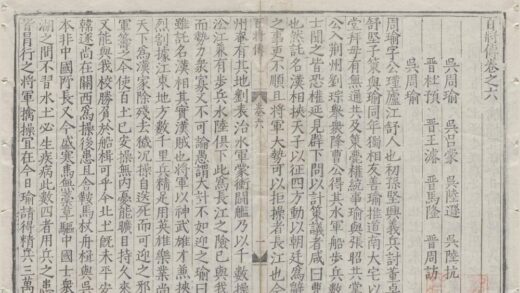 百將傳卷之六
吳周瑜 吳呂蒙 吳陸遜 吳陸抗
晉杜預 晉王濬 晉馬隆 晉周訪
吳周瑜
周瑜字公瑾廬江舒人也初孫堅興義兵討董卓
舒堅子策與瑜同年獨相友善瑜推道南大宅以
堂拜母有無通共及策薨權統事瑜與張昭共掌
公入荊州劉琮舉衆降曹公得其水軍船步兵數
士聞之皆恐權延見羣下問以計策議者咸曰曹
也然託名漢相挾天子以征四方動以朝廷為辭
之事更不順且將軍大勢可以拒操者長江也今
百將傳 卷六 一
州奄有其地劉表治水軍蒙衝鬬艦乃以千數操
沿江兼有步兵水陸俱下此為長江之險已與我
而勢力衆寡又不可論愚謂大計不如迎之瑜曰
雖託名漢相其實漢賊也將軍以神武雄才兼挾
烈割據江東地方數千里兵精足用英雄樂業尚
天下為漢家除殘去穢况操自送死而可迎之邪
軍籌之今使百土已安操無內憂能曠日持久來
又能與我校勝負於船楫可乎今北土既未平安
韓遂尚在關西為操後患且舍鞍馬杖舟楫與吳
本非中國所長又今盛寒馬無藁草驅中國士衆
湖之間不習水土必生疾病此數四者用兵之患
皆冒行之將軍擒操宜在今日瑜請得精兵三萬